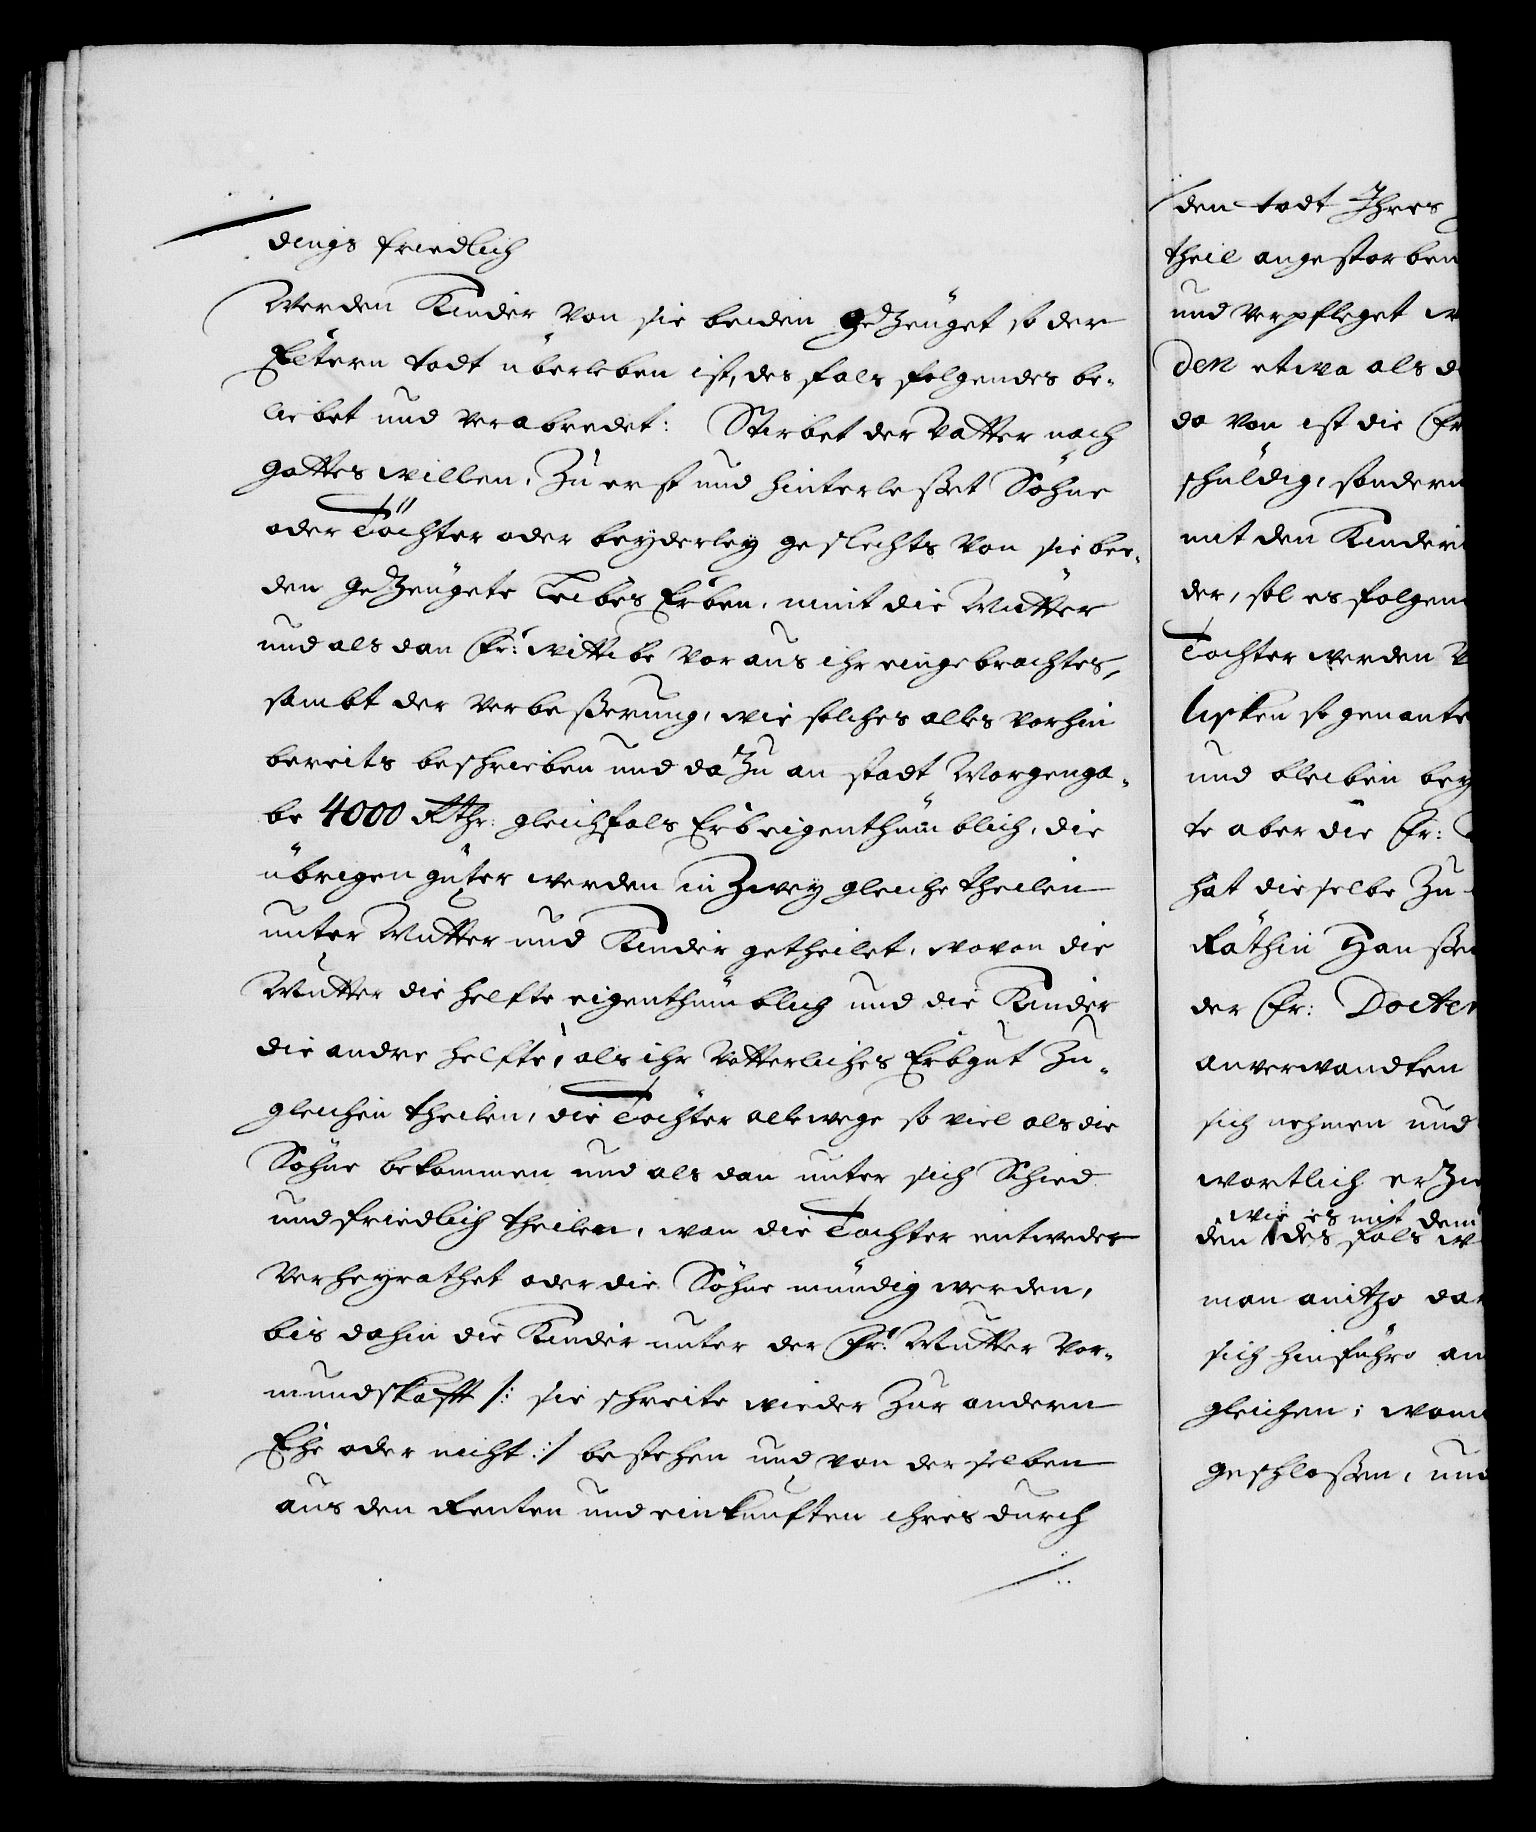 dings friedlich
Werden Kinder von sie beiden gezeuget so der
Eltern todt überleben ist, des fals folgendes be-
liebet und verabredet: Stirbet der Vatter nach
Gottes willen, zu erst und hinterleßet Söhne
oder Töchter oder beyderley geslechts von sie bee-
den gezeugete Leibes Erben, nimt die Mutter
und als dan Fr: wittibe voraus ihr eingebrachtes,
sambt der verbeßerung, wie solches alles vorhin
bereits beschrieben und dazu an stadt Morgenga-
be 4000 Rthr: gleichfals Erbeigenthümblich, die
übrigen güter werden in zwey gleiche theilen
unter Mutter und Kinder getheilet, wovon die
Mutter die helfte eigenthümblich und die Kinder
die andre helfte, als ihr Vatterliches Erbgut zu
gleichen theilen, die Töchter allewege so viel als die
Söhne bekommen und als dan unter sich Schied
und friedlich theilen, wan die Tochter entweder
verheyrathet oder die Söhne mündig werden,
bis dahin die Kinder unter der Fr: Mutter Vor-
mundskafft /: sie schreite wieder zur andern
Ehe oder nicht :/ bestehen und von derselben
aus den Renten und einkunften ihres durch
/:
den todt Ihres
theil angestorben
und verpfleget
den etwa als
da von ist die Fr
schuldig, sondern
mit den Kindern
der, sol es folgen
Tochter werden
lichen so genante
und bleiben bey
te aber die Fr:
hat dieselbe zu
Räthin Hanßen
der Fr: Docter
anverwandten
sich nehmen und
wortlich erzie
wie es mit dem
den des fals
man anitzo dar
sich hinführo an
gleichen; wom
geschloßen, und